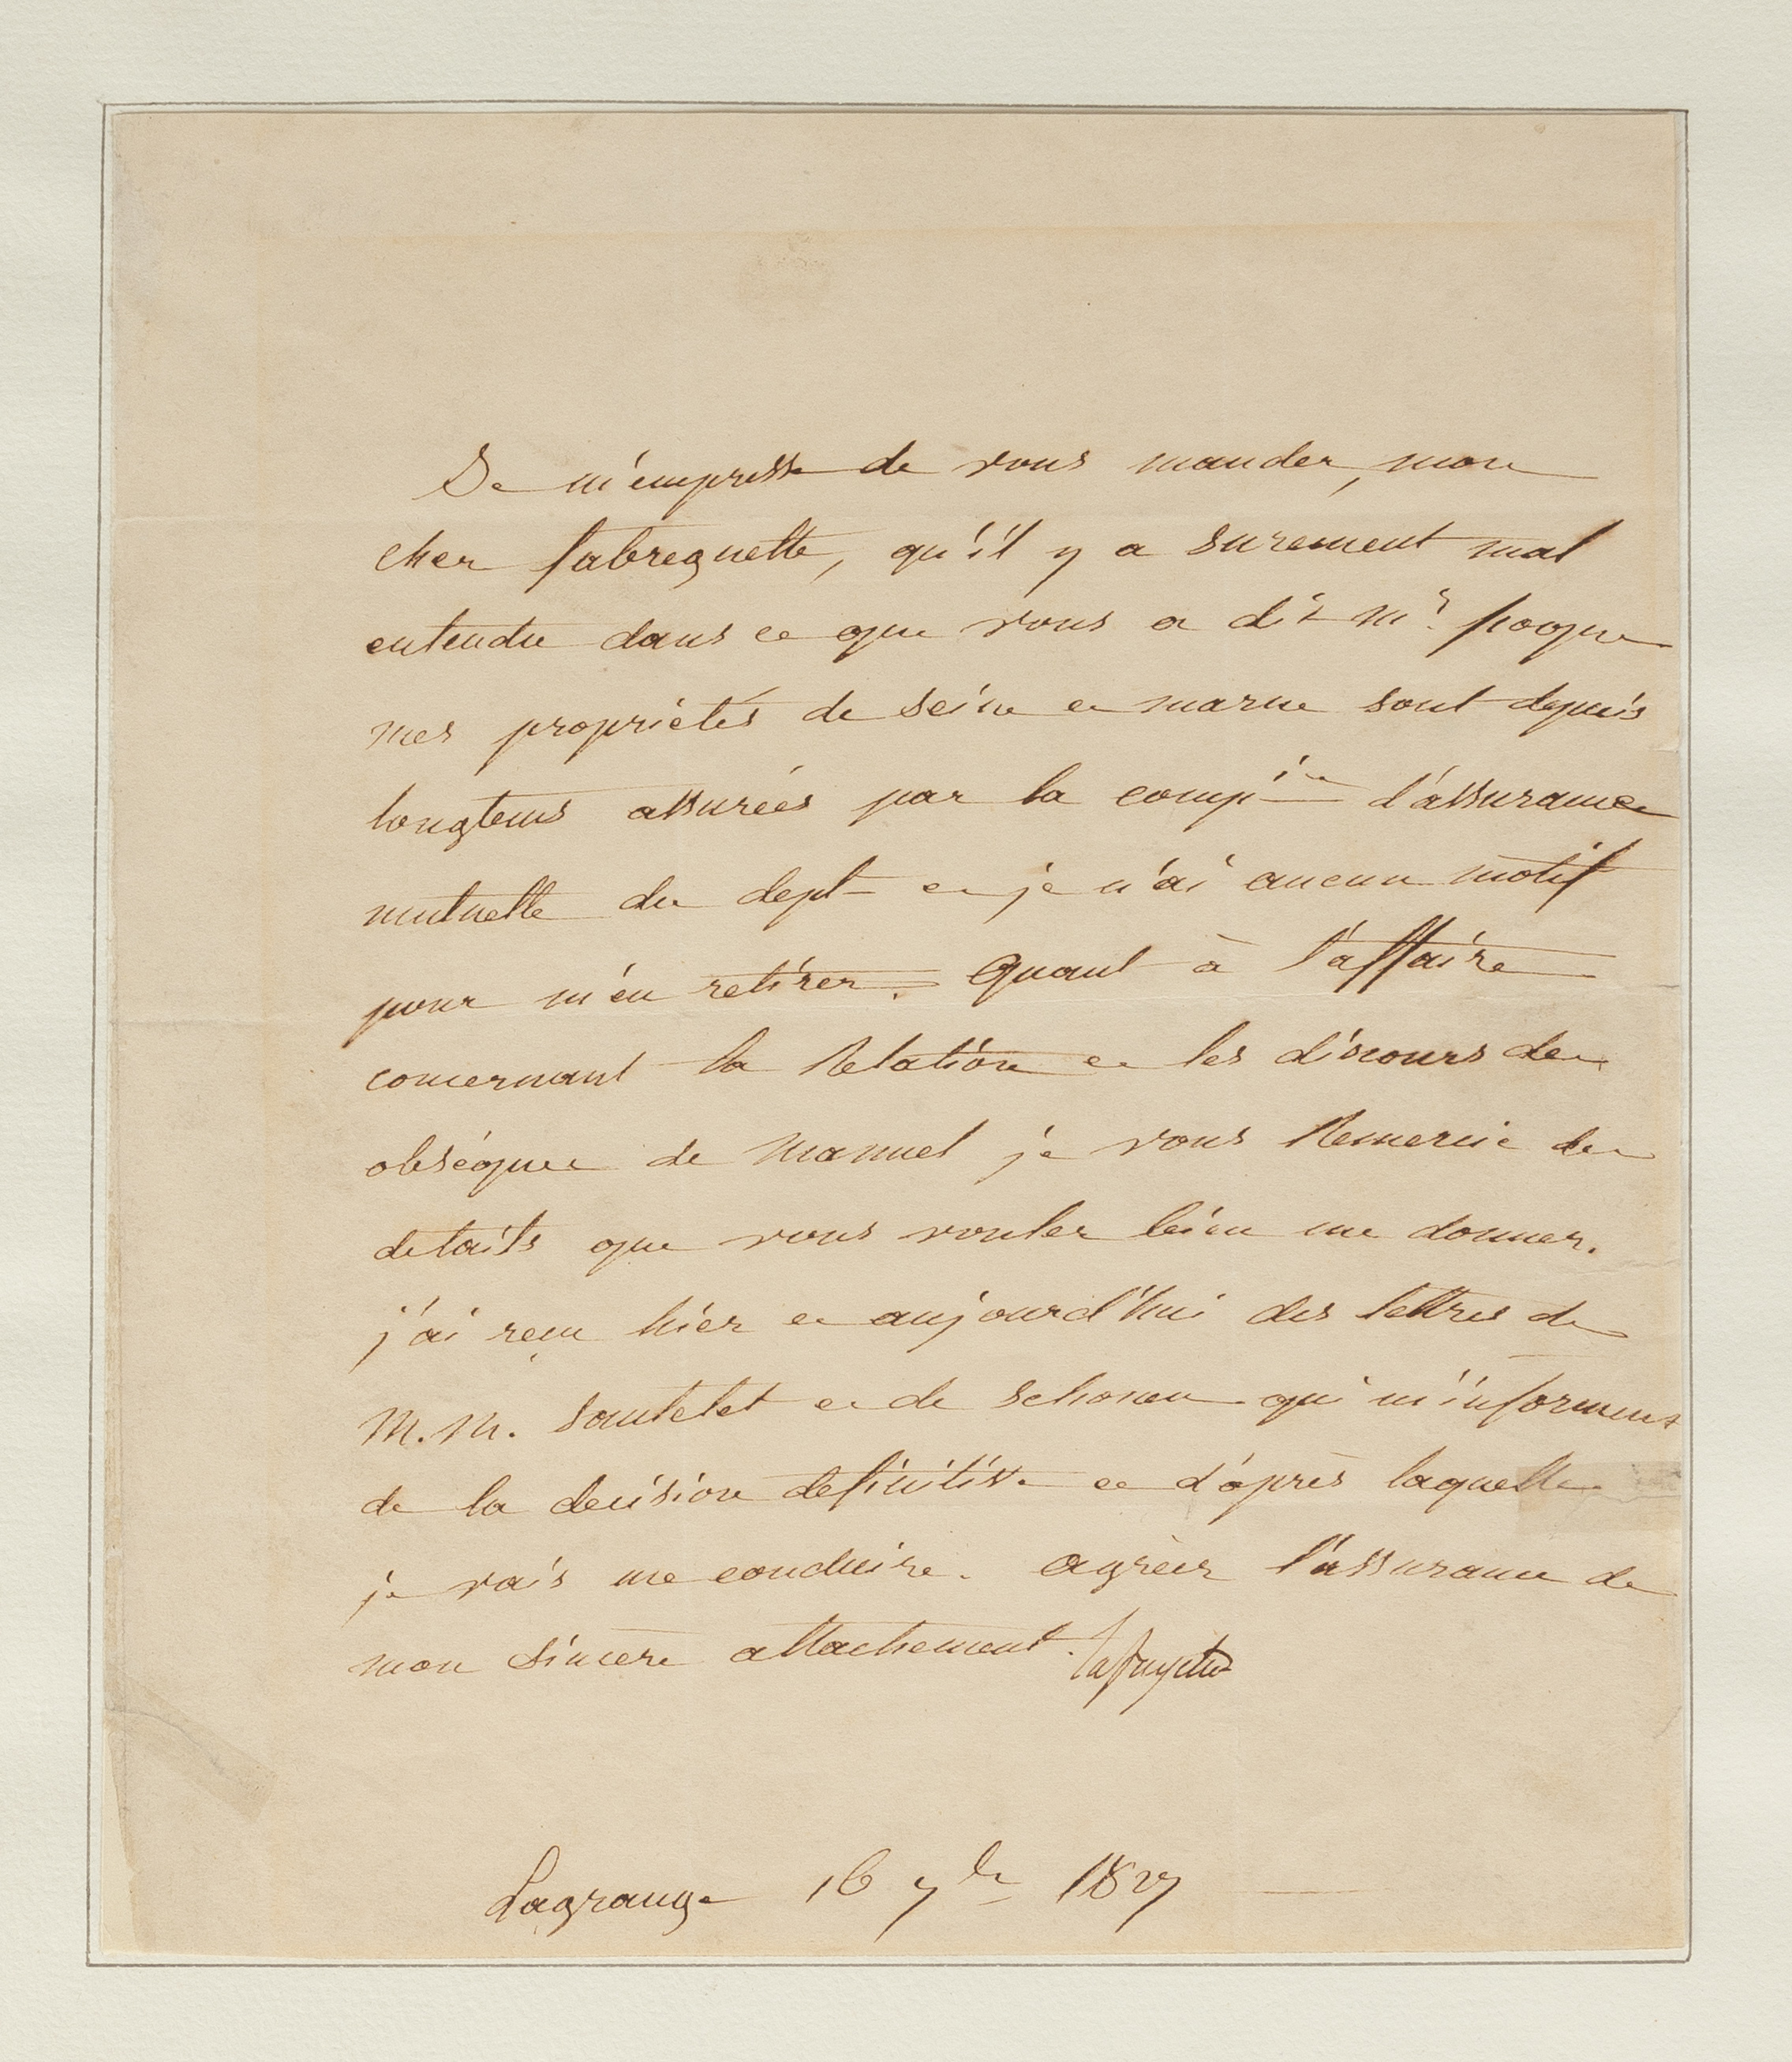 Je m'empresse de vous mander, mon
cher fabreguette, qu'il y a surement mal
entendu dans ce que vous a dit Mr. poque
mes propriétés de seine et marne sont depuis
longtems assurées par la compie d'assurance
mutuelle du dept et je n'ai aucun motif
pour m'en retirer. Quant à l'affaire
concernant la Relation et les discours des
obséques de Manuel je vous Remercie des
details que vous voulez bien me donner.
j'ai reçu hier et aujourd'hui des lettres de
M.M. Sautelet et de Schonen qui m'informent
de la decision definitive et d'après laquelle
je vais me conduire. agréez l'assurance de
mon sincère attachement. Lafayette
Lagrange 16 7bre 1827